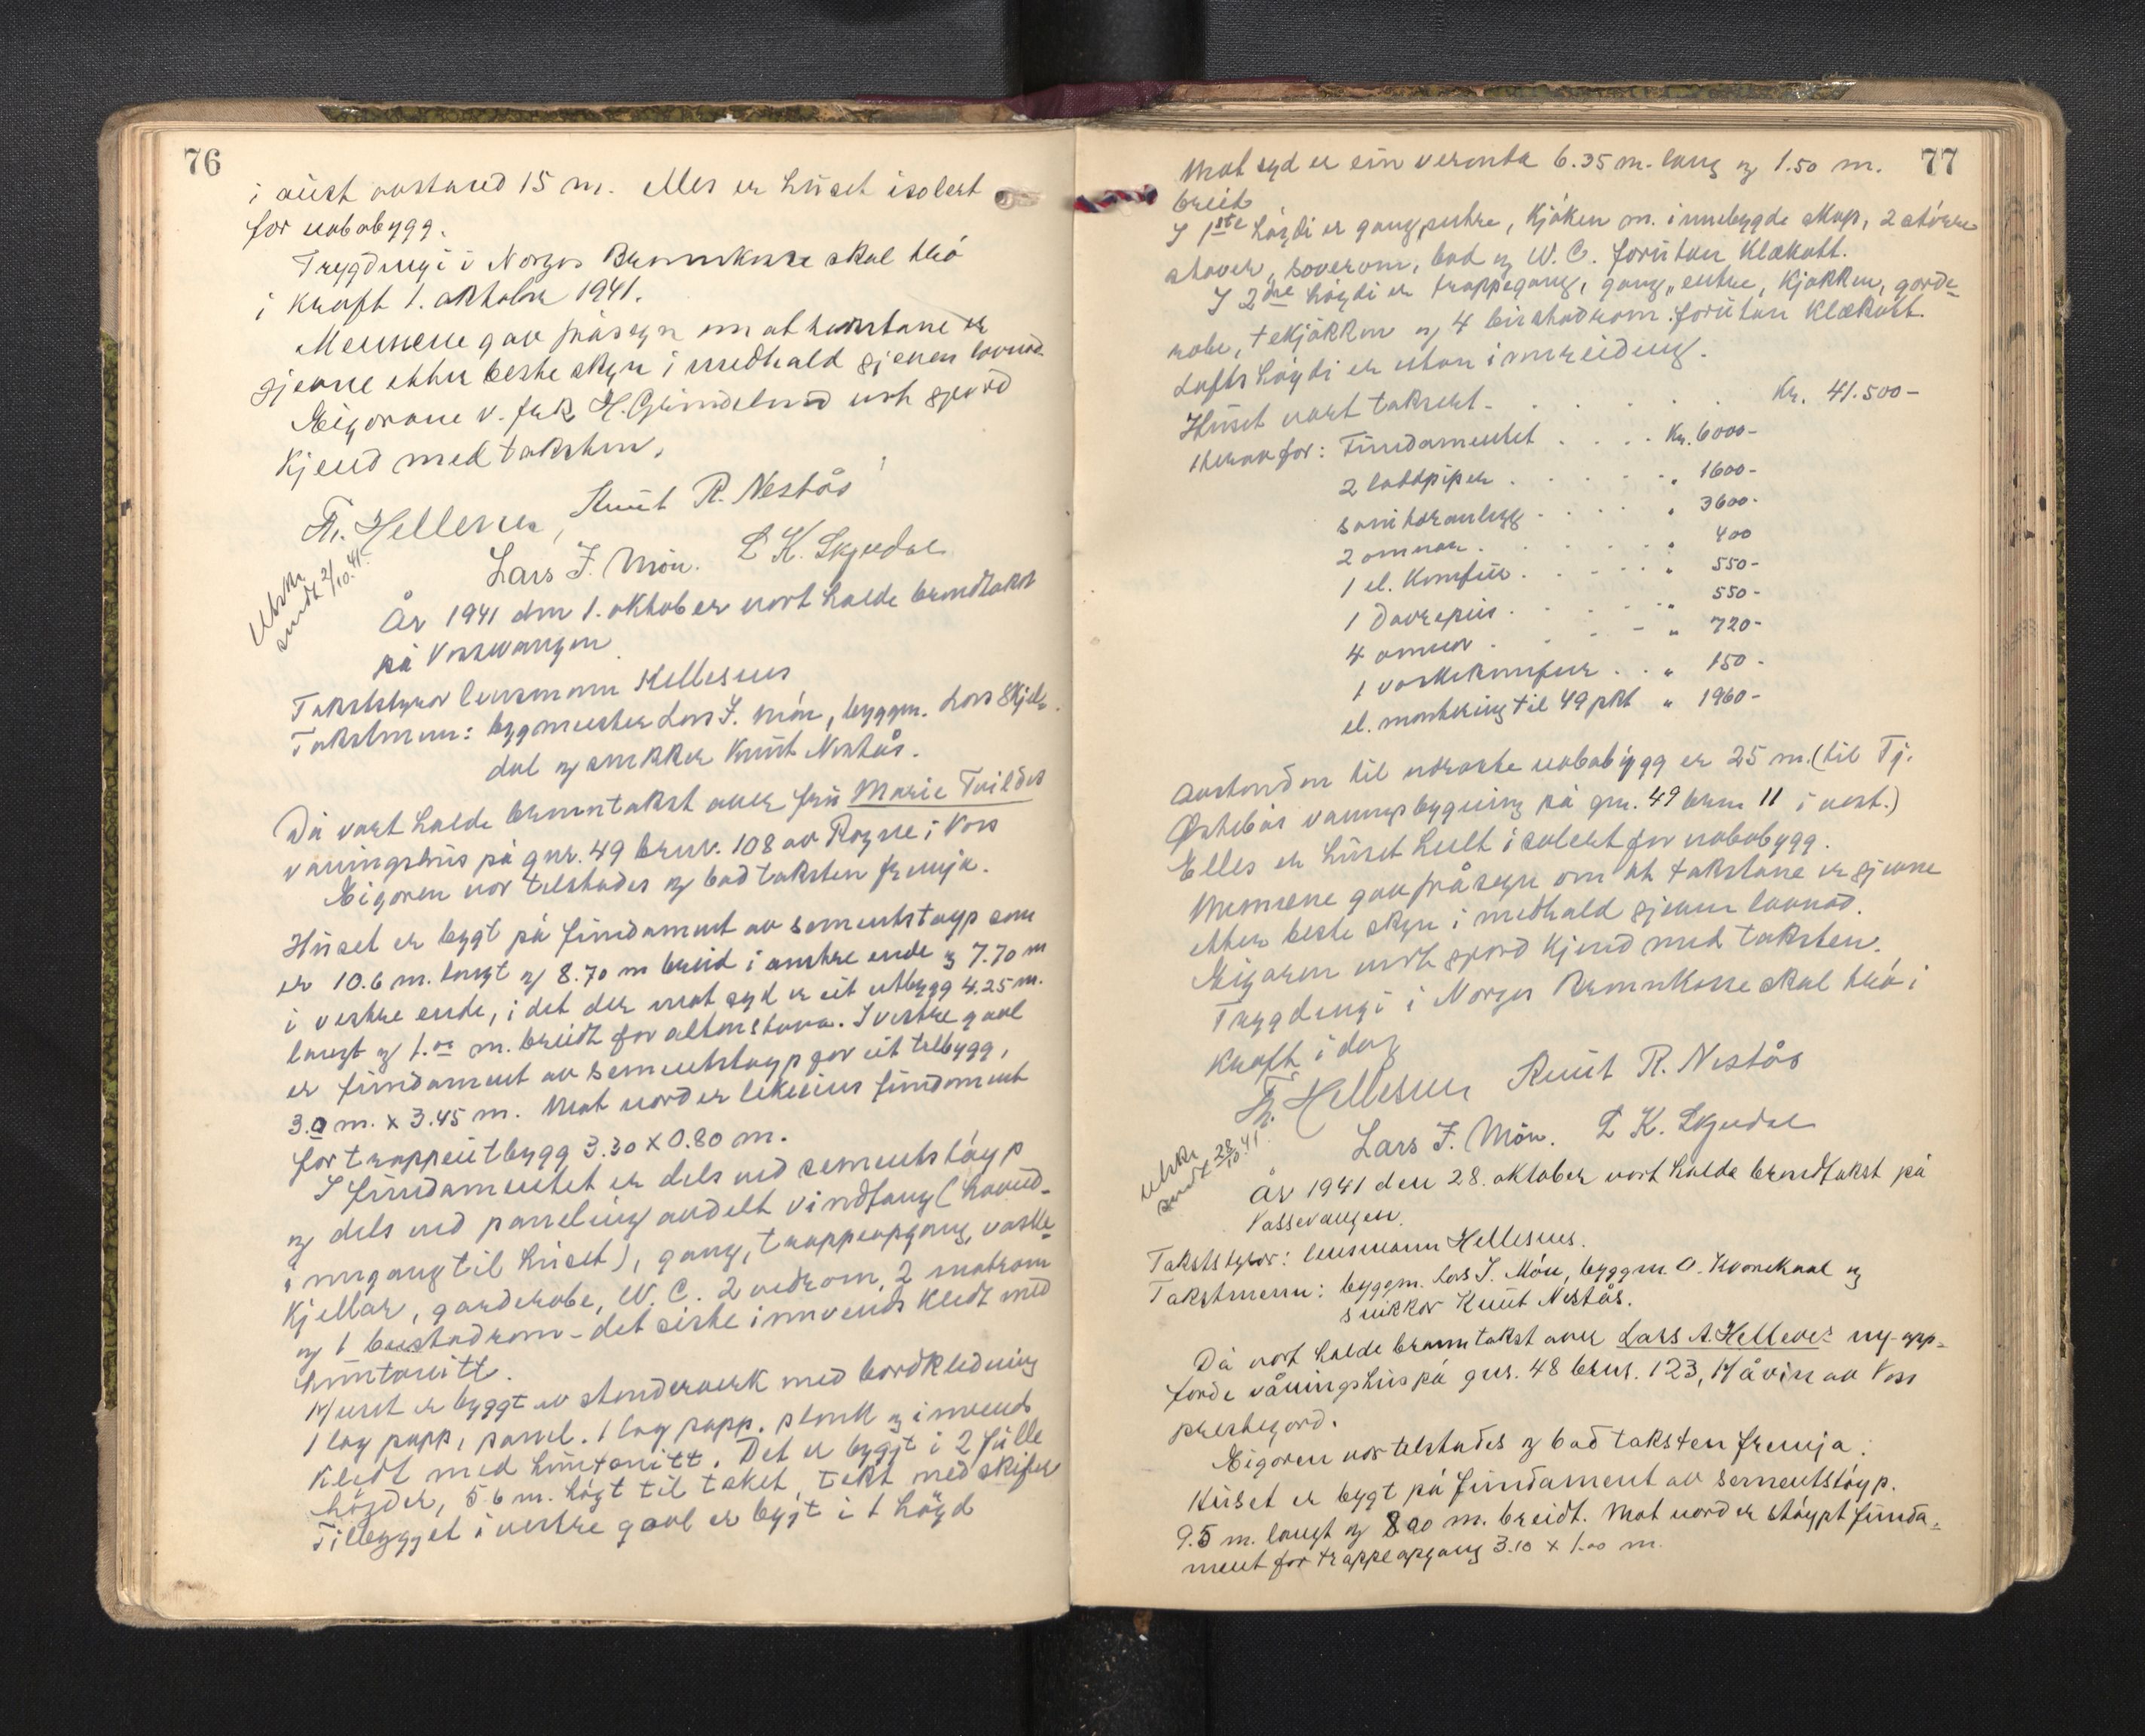 76
i aust avstand 15 m. Elles er huset isolert
for nabobygg.
Trygdingi i Norges Brannkasse skal bli
i kraft 1. oktober 1941.
Mennene gav fråsegn om at takstane er
gjevne etter beste skyn i medhald gjeven lovnad.
Eigarane v. frk. H. Grindelund vert gjord
kjend med taksten.
Th. Hellesnes, Knut R. Nestås
Lars J. Mön. L K. Skjeldal
Utskr.
sendt 2/10.41.
År 1941 den 1. oktober vart halde branntakst
på Vossevangen
Takststyrar lensmann Hellesnes
Takstmenn: bygmeister Lars J. Món, byggm. Lars Skjel-
dal og snikkar Knut Nestås.
Då vart halde branntakst over fru Marie Tvildes
våningshus på gnr. 49 brnr. 108 av Rogne i Voss
Eigaren var tilstades og bad taksten fremja.
Huset er bygt på fundament av sementstøyp som
er 10.6 m. langt og 8.70 m breid i austre ende og 7.70 m
i vestre ende, i det der mot syd er eit utbygg 4.25 m.
langt og 1.00 m. breidt for altanstova. I vestre gavl
er fundament av sementstøyp for eit tilbygg,
3.0 m. x 3.45 m. Mot nord er likeeins fundament
for trappeutbygg 3.30 x 0.80 m.
I fundamentet er dels ved sementstøyp
og dels ved paneling avdelt vindfang (hovud-
inngang til huset), gang, trappeopgang, vaske-
kjellar, garderobe, W. C. 2 vedrom, 2 matrom
og 1 bustadrom - det siste innvends kledt med
huntonitt.
Huset er byggt av stenderverk med bordkledning
1 lag papp, panel. 1 lag papp. plank og innvends
kledt med huntonitt. Det er byggt i 2 fulle
högder, 5.6 m. høgt til taket, tekt med skifer
Tilbygget i vestre gavl er bygt i 1 högd
77
Mot syd er ein veranda 6.35 m. lang og 1.50 m.
breid
I 1ste högdi er gang, entre, kjöken m. innebygde skap, 2 större
stover, soverom, bad og W. C. foruten klækott.
I 2dre högdi er trappegang, gang, entre, kjökken, garde-
robe, tekjökken og 4 bustadrom foruten klækott.
Loftshögdi er utan innreiding.
Huset vart taksert - . . . . . Kr. 41.500-
Herav for: Fundamentet . . . . Kr. 6000-
2 luftpiper . . . . . " 1600-
sanitæranlegg . . . . " 3600-
2 omnar . . . . . " 400
1 el. komfür . . . . " 550-
1 Davrepeis . . . . " 550-
4 omnar . . . - " 720-
1 vaskekomfur . . " 150-
el. montering til 49 pkt " 1960-
Avstanden til næraste nabobygg er 25 m. (til Tj.
Østebös vaaningsbygning på gnr. 49 brnr 11 i vest.)
Elles er huset heilt isolert for nabobygg.
Mennene gav fråsegn om at takstane er gjevne
etter beste skyn i medhald gjeven lovnad.
Eigaren vert gjord kjend med taksten.
Trygdingi i Norges Brannkasse skal bli i
kraft i dag
Th. Hellesnes Knut R. Nestås
Lars J. Mön. L K. Skjeldal
Utskr.
sendt 28/10.41.
År 1941 den 28. oktober vart halde branntakst på
Vossevangen.
Takststyrar: lensmann Hellesnes.
Takstmenn: byggm. Lars J. Món, byggm. O. Kvarekval og
snikkar Knut Nestås.
Då vart halde branntakst over Lars A. Helleve's ny-opp-
förde våningshus på gnr. 48 brnr. 123, Håvin av Voss
prestegard.
Eigaren var tilstades og bad taksten fremja.
Huset er bygt på fundament av sementstöyp.
9.5 m. langt og 8.90 m. breidt. Mot nord er stöypt funda-
ment for trappeopgang 3.10 x 1.00 m.